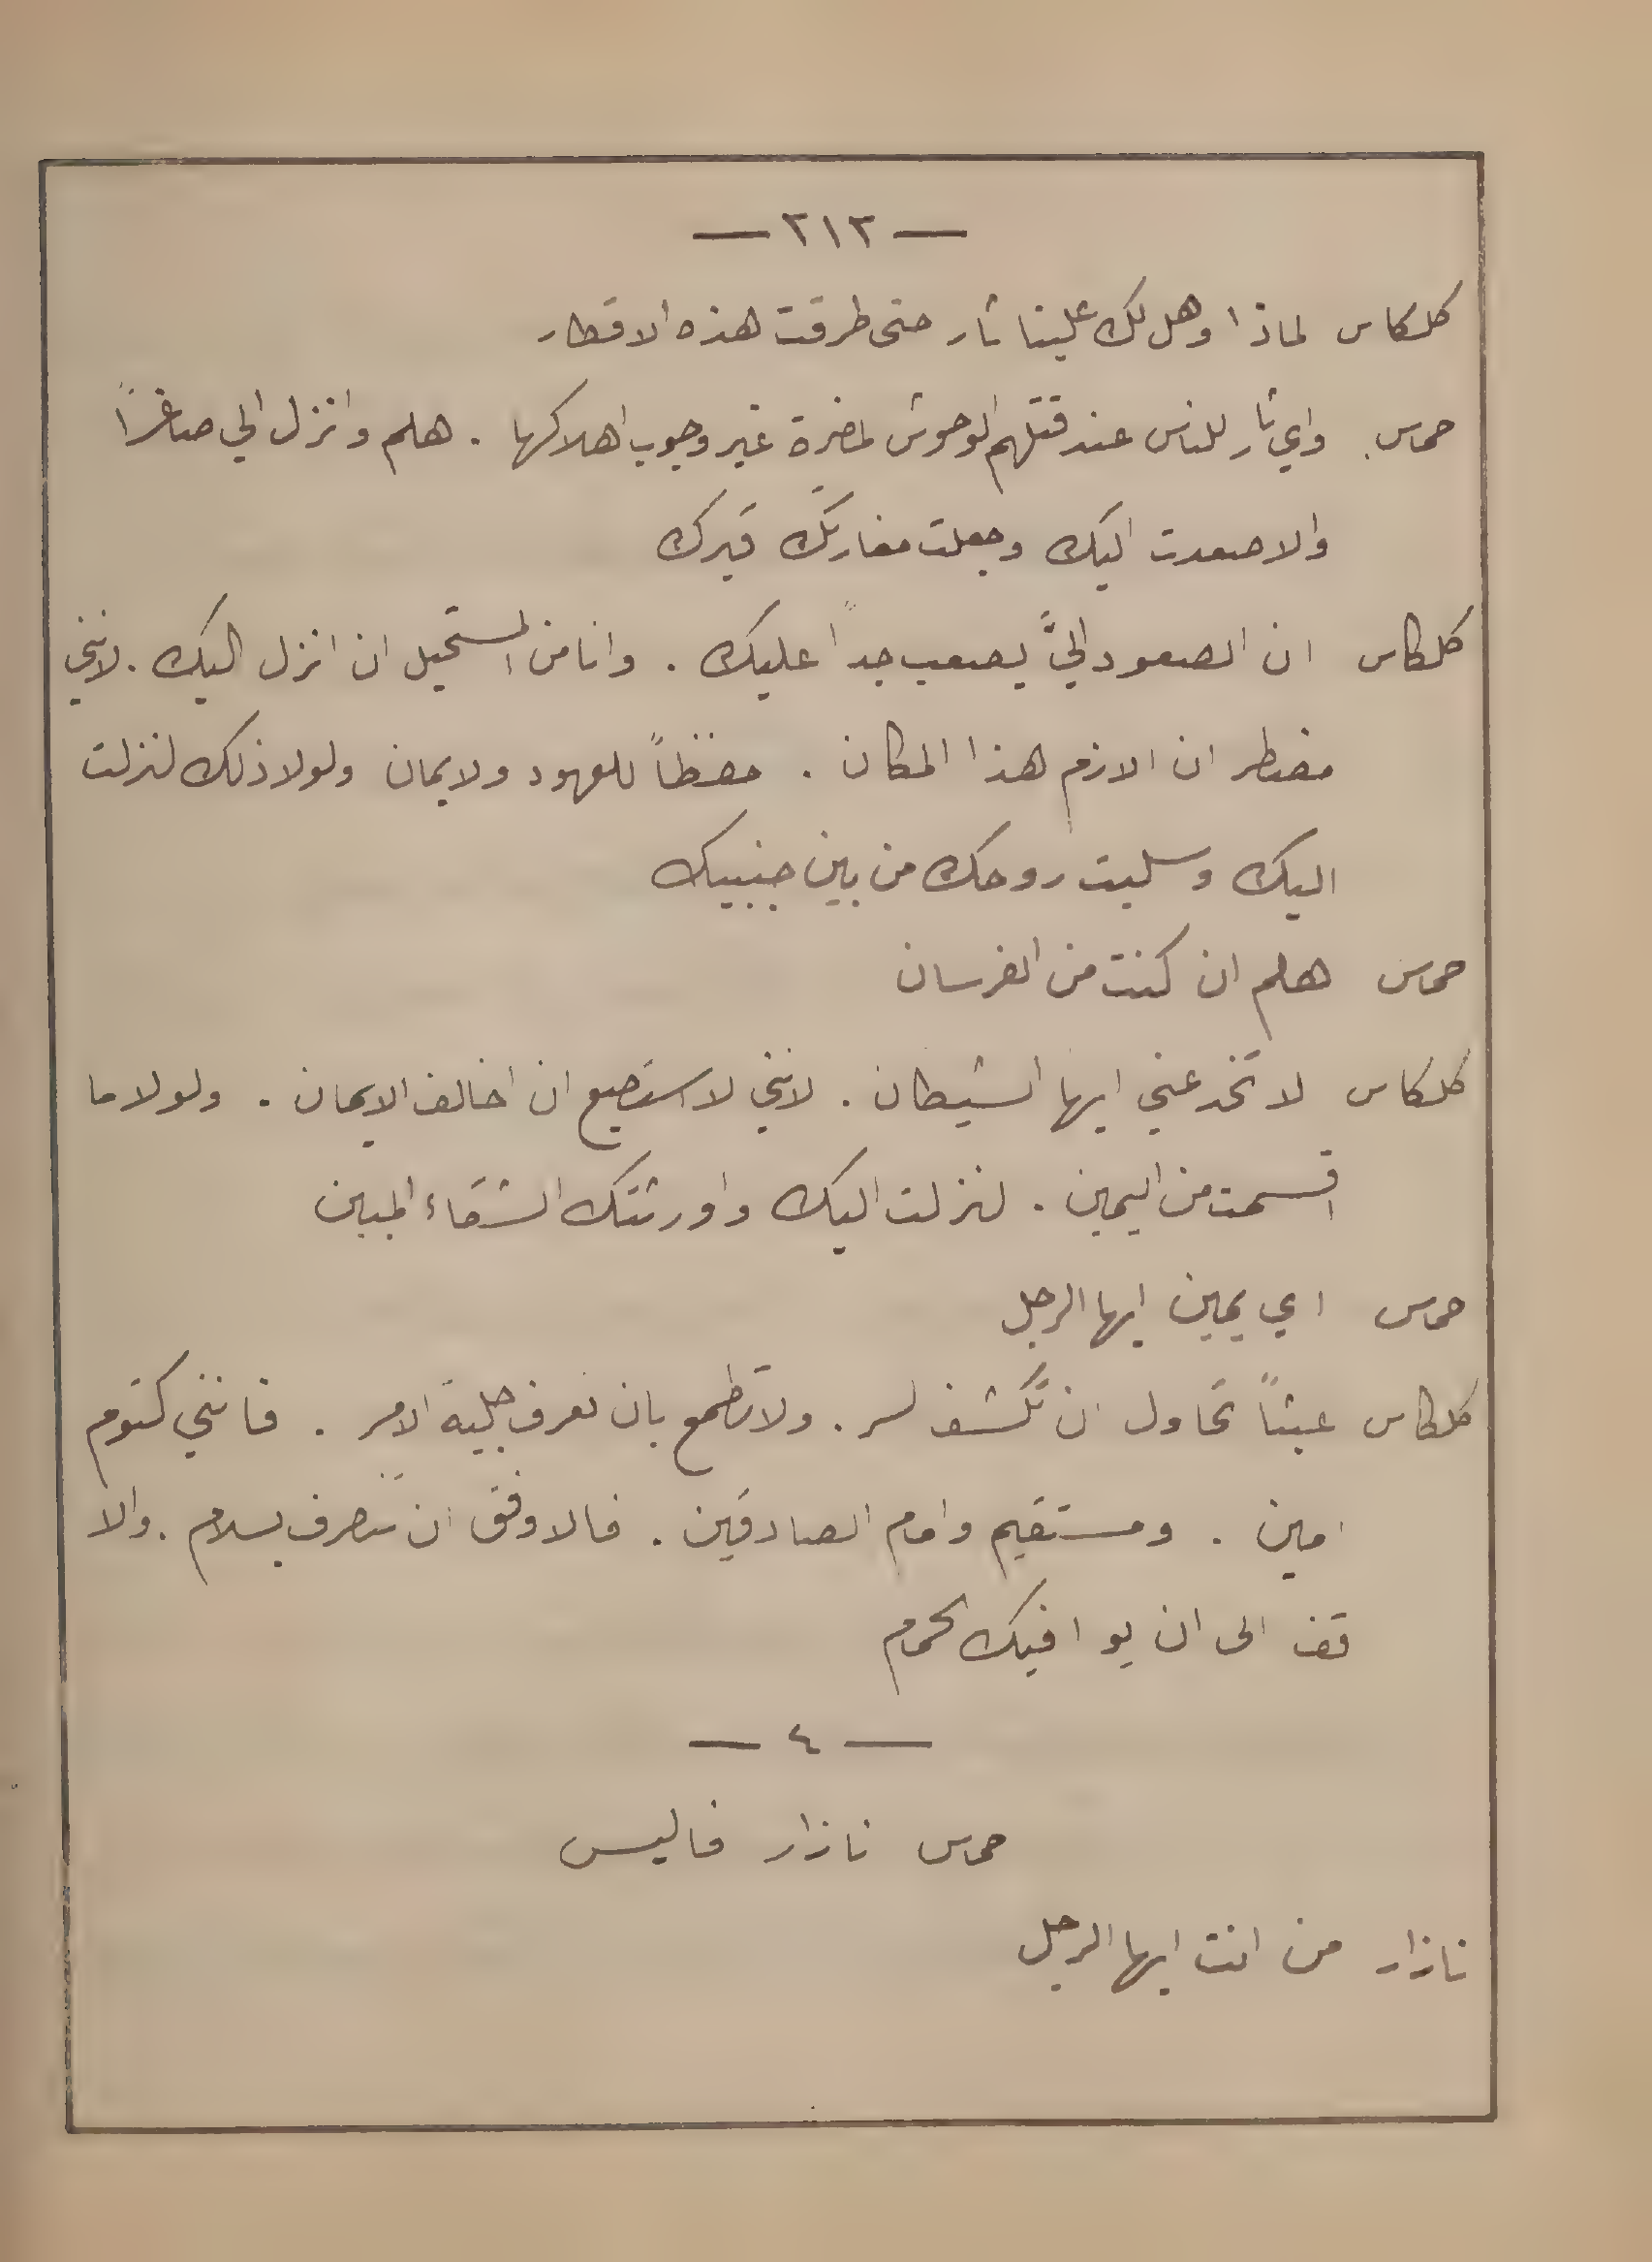 — ٢١٣ —
كلكاس لماذا وهل لك علينا ثار حتى طرقت هذه الاقطار
حماس واي ثار للناس عند قتلهم الوحوش لمضرة غير وجوب اهلاكها . هلم وانزل الي صاغراً
والا صعدت اليك وجعلت مغارتك قبرك
كلكاس ان الصعود اليَّ يصعب جداً عليك . وانا من المستحيل ان انزل اليك . لانني
مضطر ان الازم هذا المكان . حفظاً للعهود ولايمان ولولا ذلك لنزلت
اليك وسلبت روحك من بين جنبيك
حماس هلم ان كنت من الفرسان
كلكاس لا تخدعني ايها الشيطان . لانني لا استطيع ان اخالف الايمان . ولولا ما
اقسمت من اليمين . لنزلت اليك واورثتك الشقاء المبين
حماس اي يمين ايها الرجل
كلكاس عبثاً تحاول ان تكشف لسر . ولا تطمع بان تعرف جلية الامر . فانني كتوم
امين . ومستقيم وامام الصادقين . فالاوفق ان تنصرف بسلام . والا
قف الى ان يوافيك الحمام
— ٤ —
حماس نازار فاليس
نازار من انت ايها الرجل